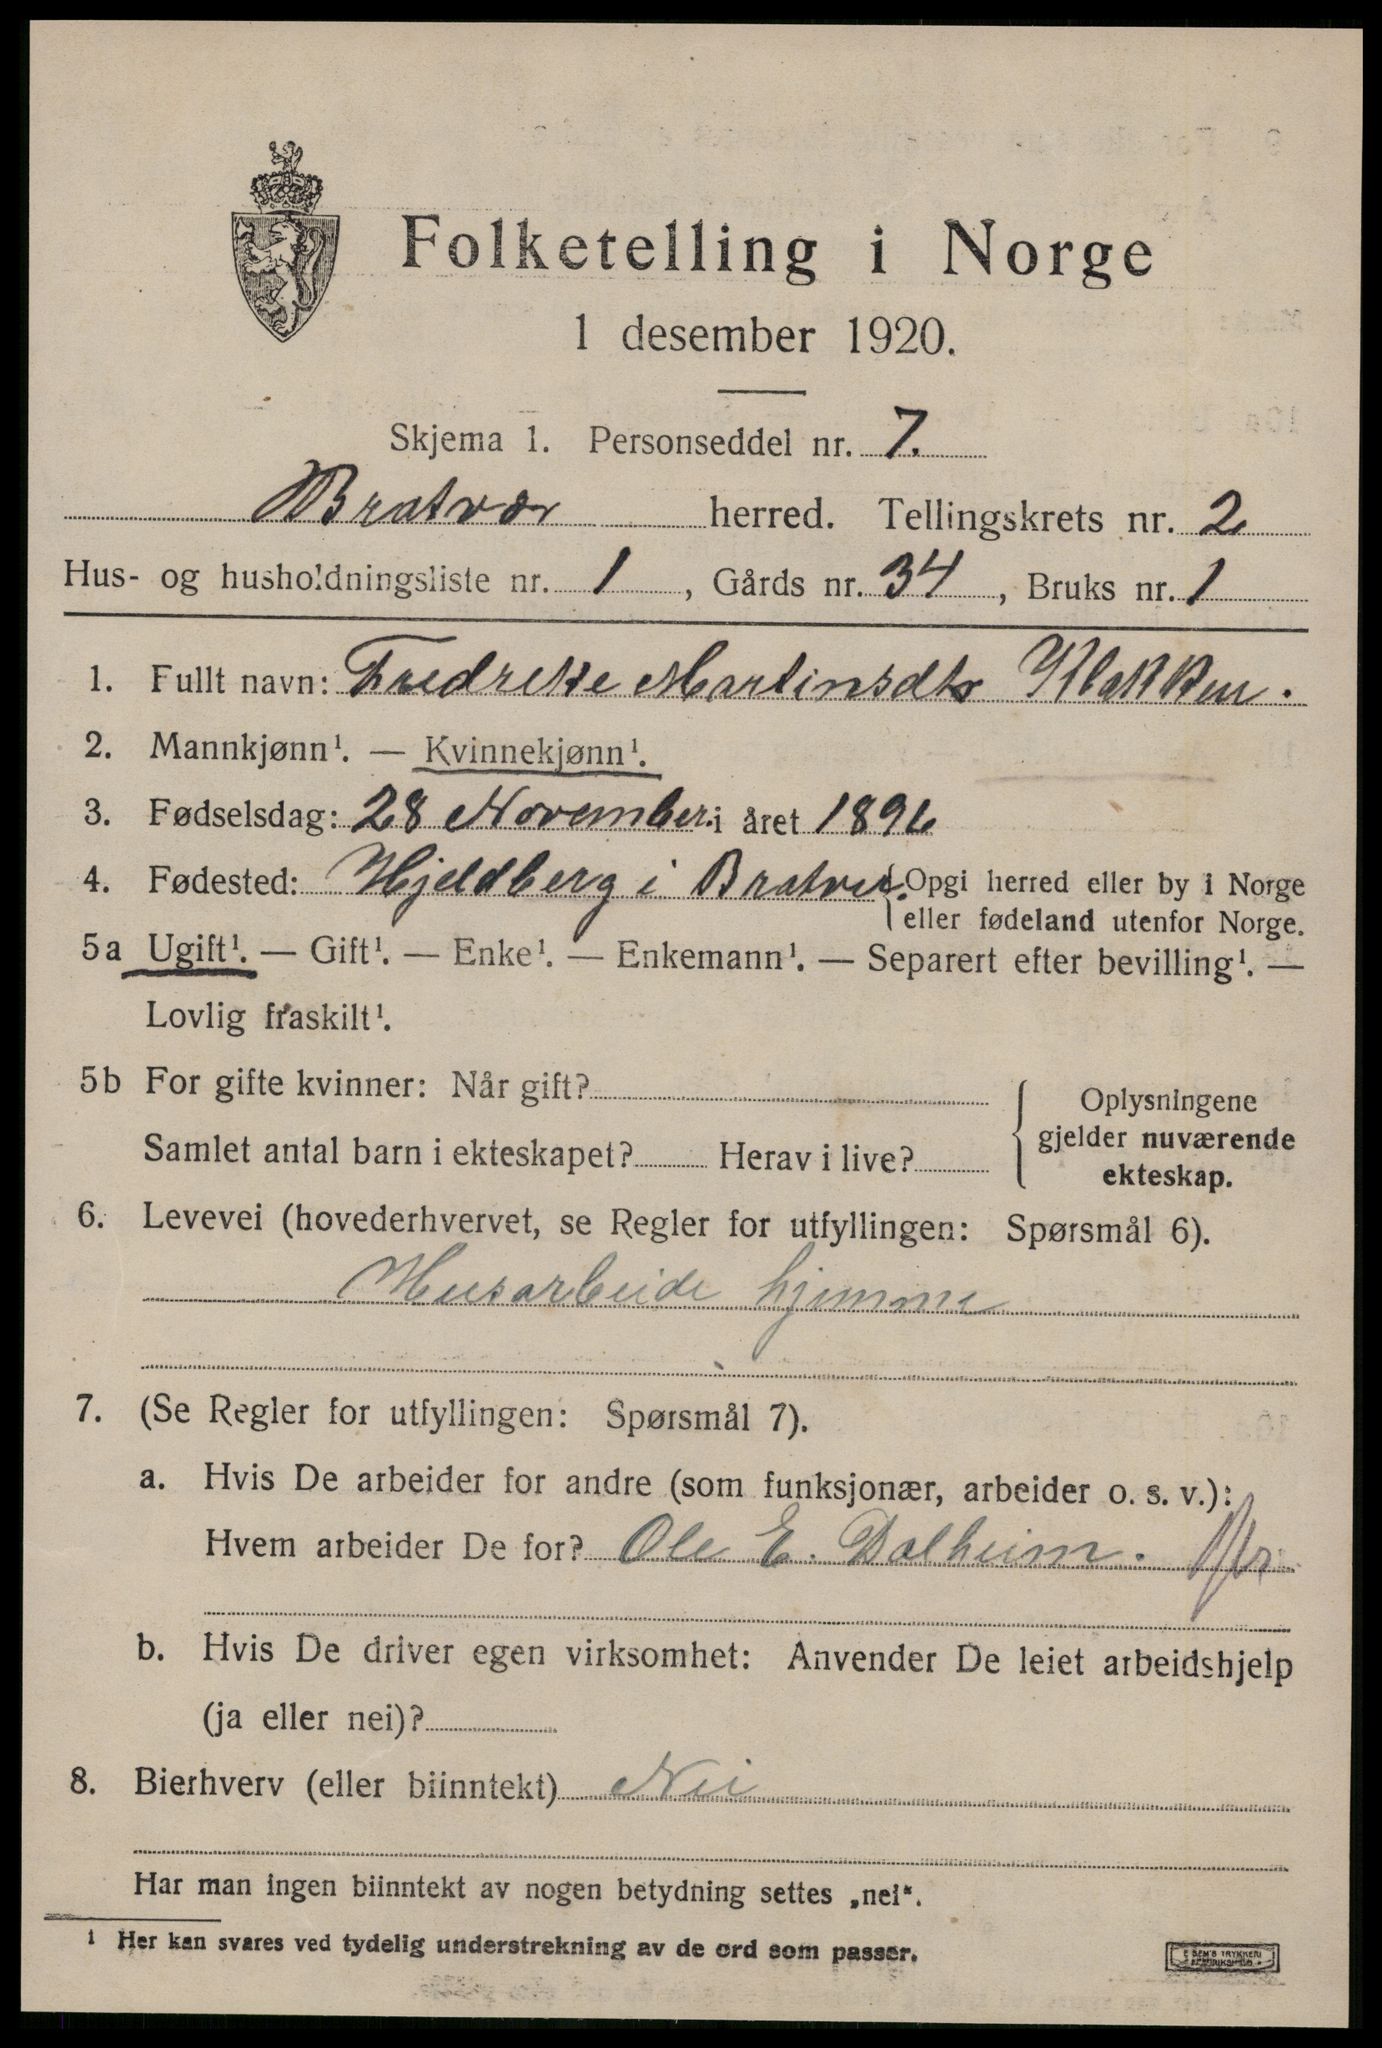 Folketelling i Norge
1 desember 1920.
Skjema 1. Personseddel nr. 7.
Bratvær herred. Tellingskrets nr. 2
Hus- og husholdningsliste nr. 1, Gårds nr. 34, Bruks nr. 1
1. Fullt navn: Fredrikke Martinsdtr Klakken.
2. Mannkjønn¹. — Kvinnekjønn¹.
3. Fødselsdag: 28 November i året 1896
4. Fødested: Hjeldberg i Bratvær. {Opgi herred eller by i Norge
eller fødeland utenfor Norge.
5a Ugift¹. — Gift¹. — Enke¹. — Enkemann¹. — Separert efter bevilling¹. —
Lovlig fraskilt¹.
5b For gifte kvinner: Når gift?
Samlet antal barn i ekteskapet? Herav i live?
Oplysningene
gjelder nuværende
ekteskap.
6. Levevei (hovederhvervet, se Regler for utfyllingen: Spørsmål 6).
Husarbeide hjemme
7. (Se Regler for utfyllingen: Spørsmål 7).
a. Hvis De arbeider for andre (som funksjonær, arbeider o. s. v.):
Hvem arbeider De for? Ole E. Dalheim.
b. Hvis De driver egen virksomhet: Anvender De leiet arbeidshjelp
(ja eller nei)?
8. Bierhverv (eller biinntekt) Nei
Har man ingen biinntekt av nogen betydning settes „nei“.
¹ Her kan svares ved tydelig understrekning av de ord som passer.